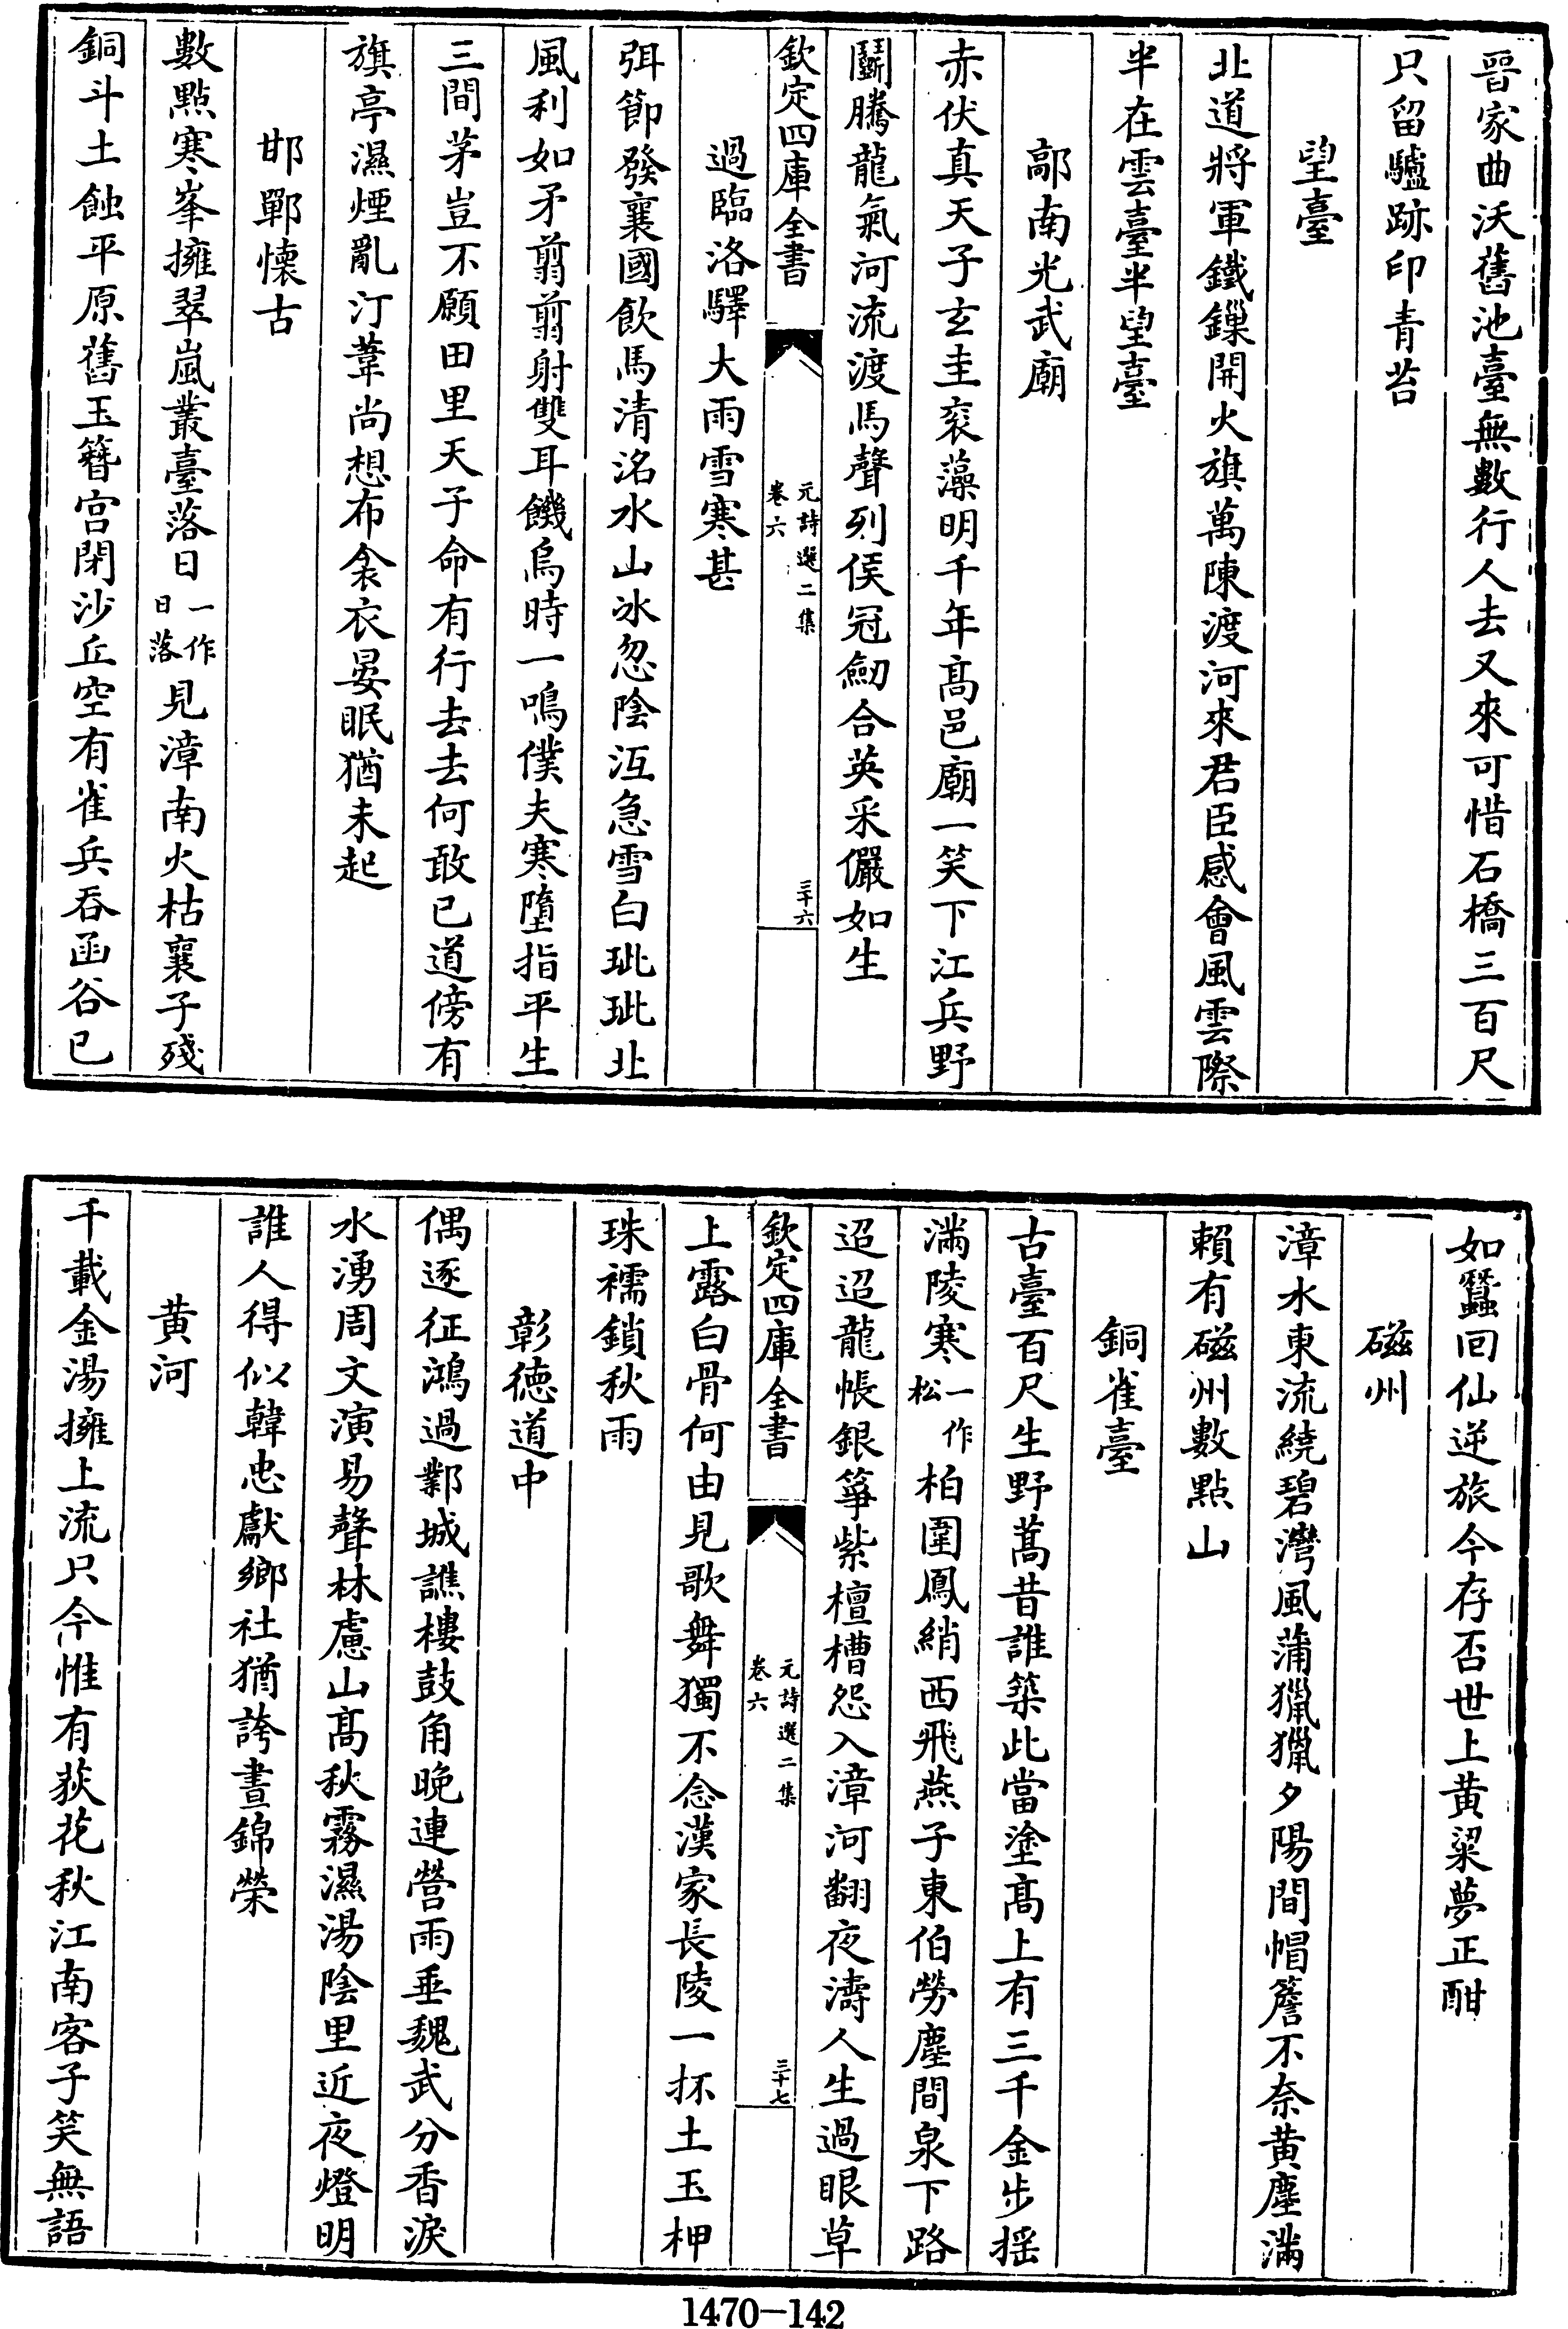 晉家曲沃舊池臺無數行人去又來可惜石橋三百尺
只留驢跡印青苔
望臺
北道將軍鐵鏁開火旗萬陳渡河來君臣感會風雲際
半在雲臺半望臺
鄗南光武廟
赤伏真天子玄圭衮藻明千年高邑廟一笑下江兵野
鬭騰龍氣河流渡馬聲列侯冠劒合英采儼如生
欽定四庫全書
元詩選二集
卷六
三十六
過臨洛驛大雨雪寒甚
弭節發襄國飲馬清洺水山冰忽陰沍急雪白玼玼北
風利如矛翦翦射雙耳饑烏時一鳴僕夫寒墮指平生
三間茅豈不願田里天子命有行去去何敢已道傍有
旗亭濕煙亂汀葦尚想布衾衣晏眠猶未起
邯鄲懷古
數點寒峯擁翠嵐叢臺落日一作日落見漳南火枯襄子殘
銅斗土蝕平原舊玉簪宫閉沙丘空有雀兵吞函谷已
如蠶回仙逆旅今存否世上黄粱夢正酣
磁州
漳水東流繞碧灣風蒲獵獵夕陽間帽簷不奈黄塵滿
賴有磁州數點山
銅雀臺
古臺百尺生野蒿昔誰築此當塗高上有三千金步摇
滿陵寒一作松柏圍鳳綃西飛燕子東伯勞塵間泉下路
迢迢龍帳銀箏紫檀槽怨入漳河翻夜濤人生過眼草
欽定四庫全書
元詩選二集
卷六
三十七
上露白骨何由見歌舞獨不念漢家長陵一抔土玉柙
珠襦鎖秋雨
彰德道中
偶逐征鴻過鄴城譙樓鼓角晚連營雨垂魏武分香淚
水湧周文演易聲林慮山高秋霧濕湯陰里近夜燈明
誰人得似韓忠獻鄉社猶誇晝錦榮
黄河
千載金湯擁上流只今惟有荻花秋江南客子笑無語
1470—142